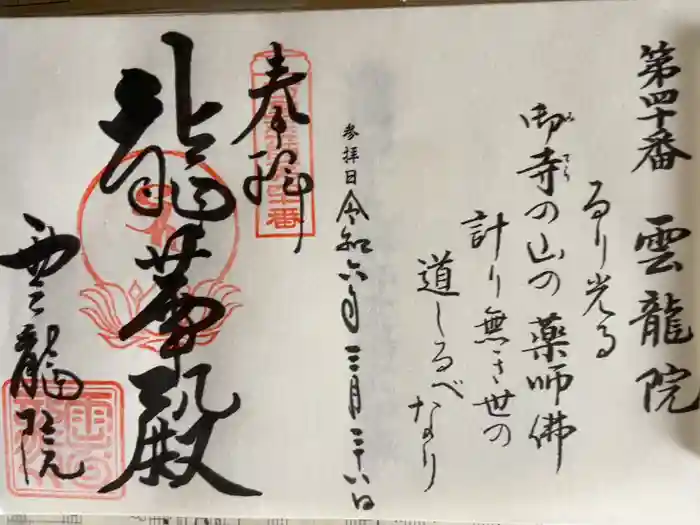 第四十番 雲龍院
るり光る
御寺の山の薬師佛
みてら
計り無き世の
道しるべなり
参拝日 令和六年三月二十八日
奉拝
龍華殿
雲龍院